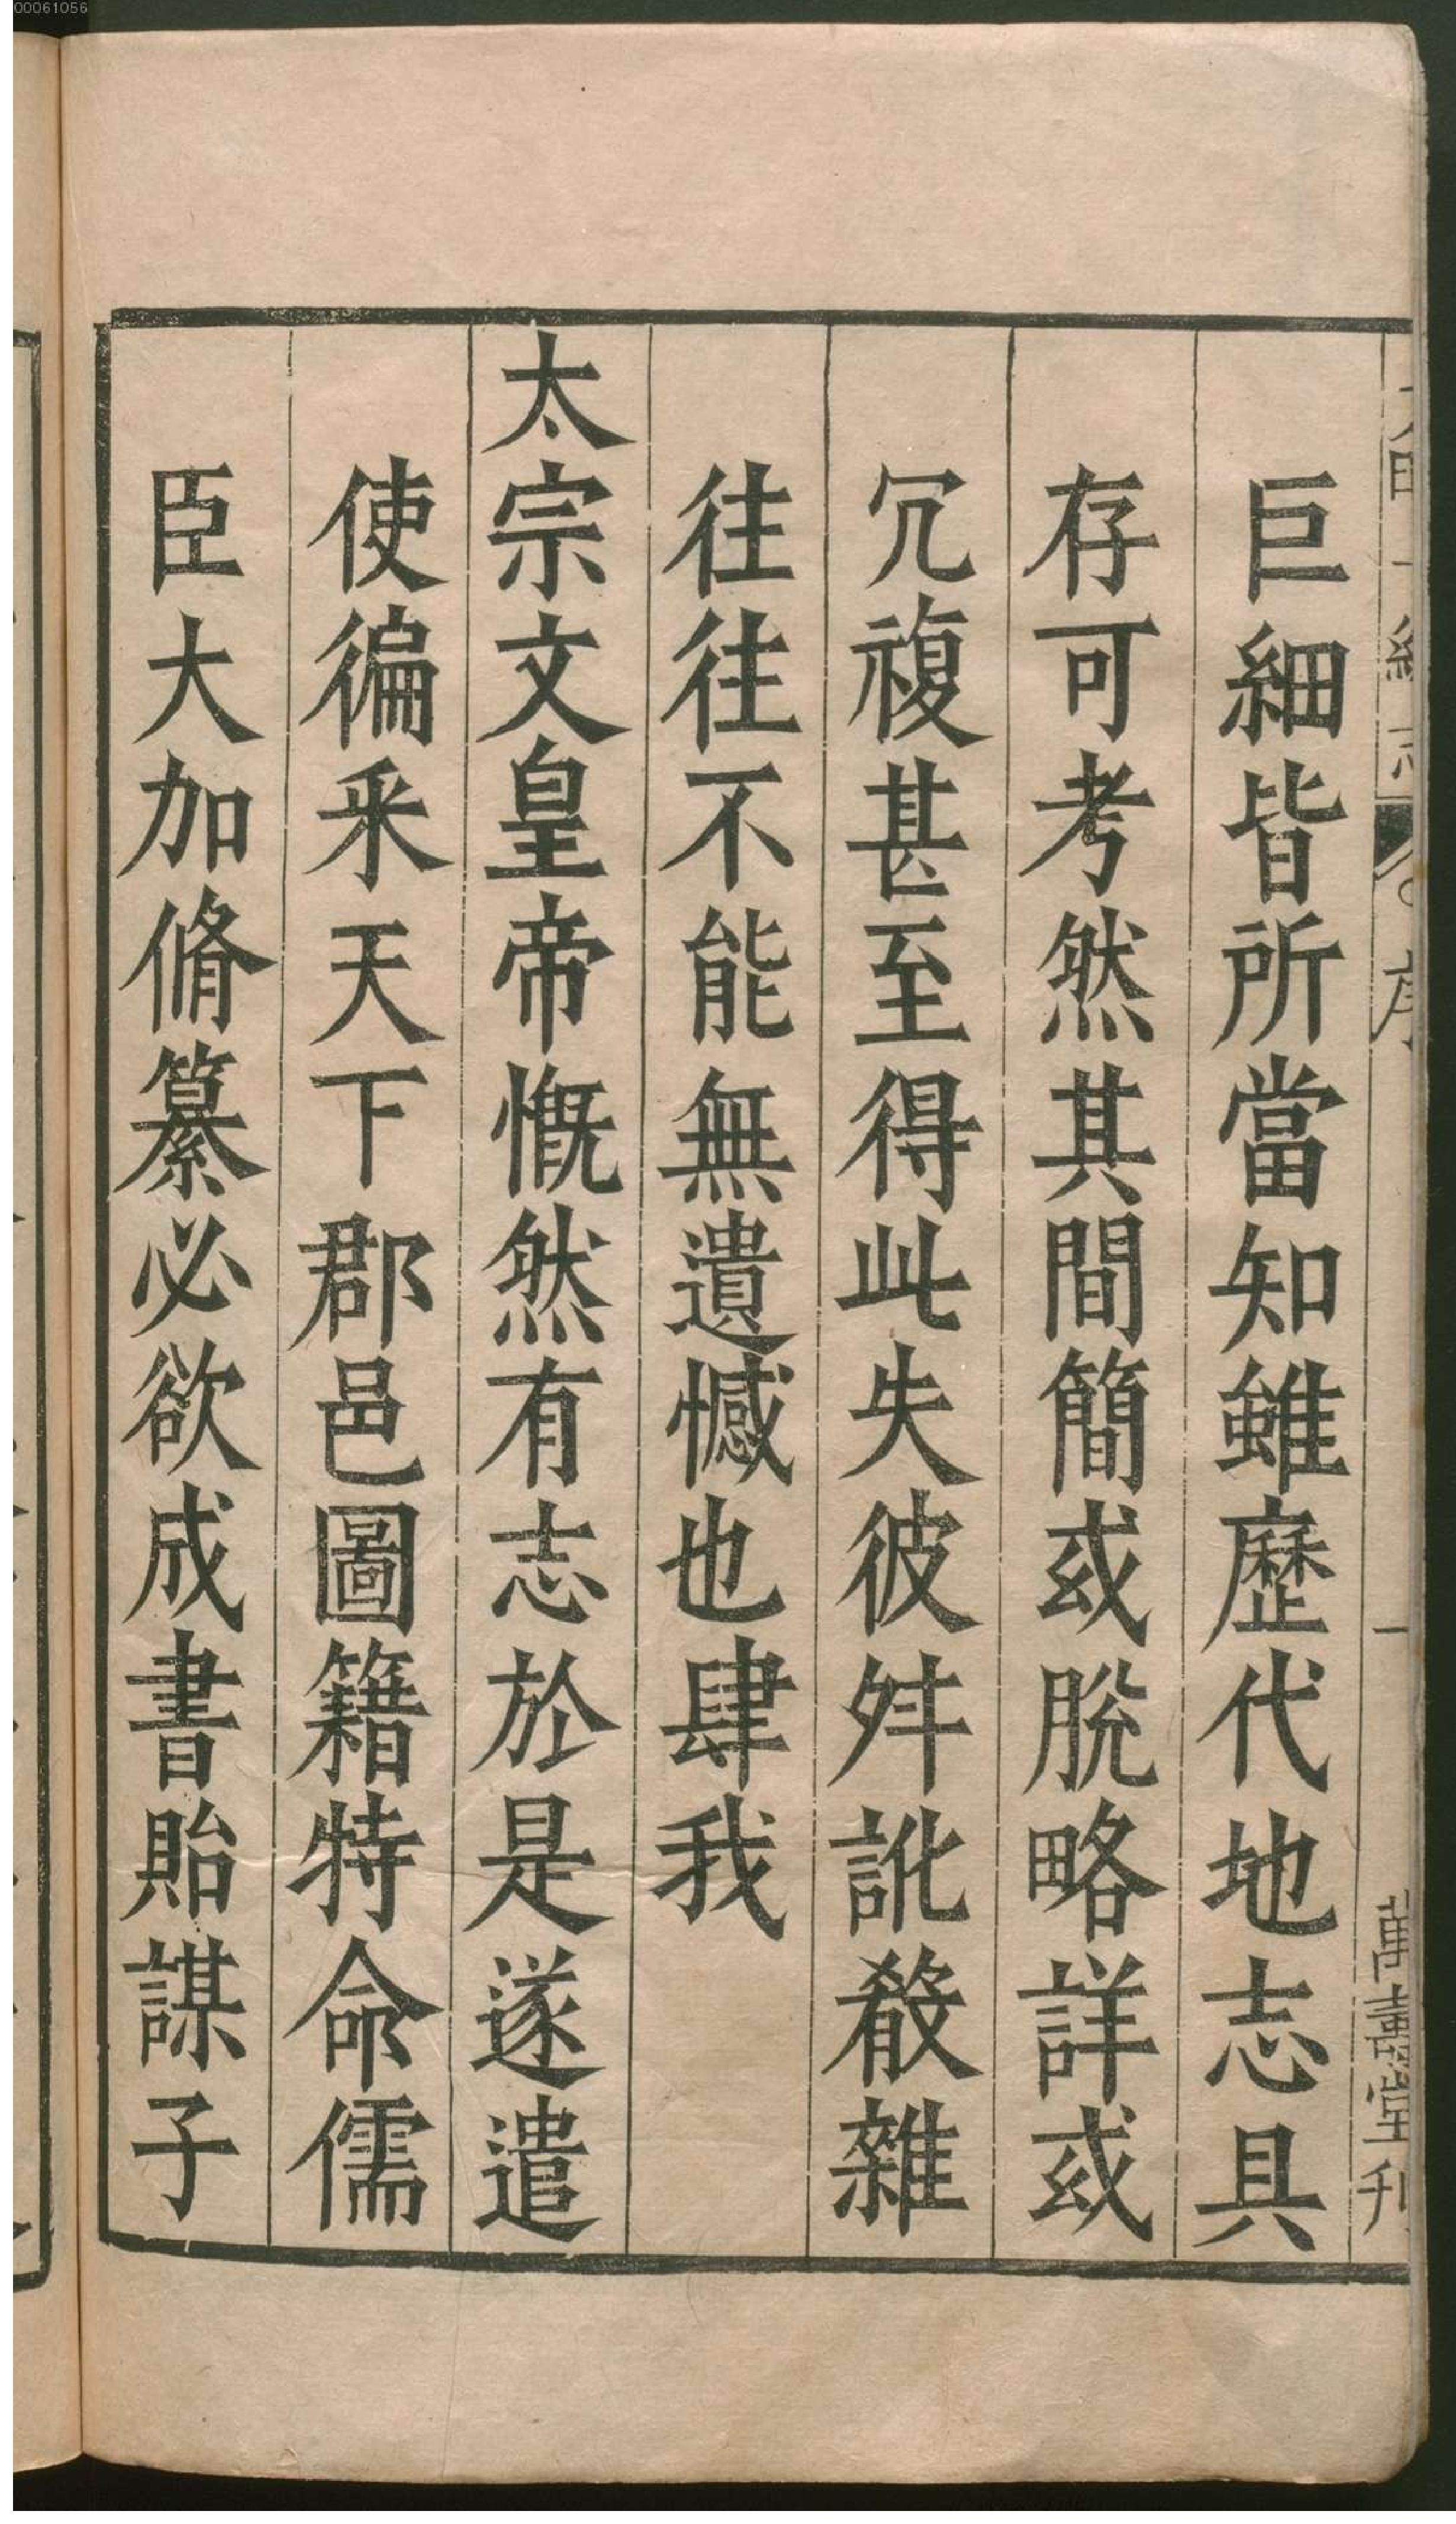 00061056
大明一統志 序 一 萬壽堂刊
巨細皆所當知雖歷代地志具
存可考然其間簡或脫略詳或
冗複甚至得此失彼舛訛殽雜
往往不能無遺憾也肆我
太宗文皇帝慨然有志於是遂遣
使徧采天下郡邑圖籍特命儒
臣大加脩纂必欲成書貽謀子